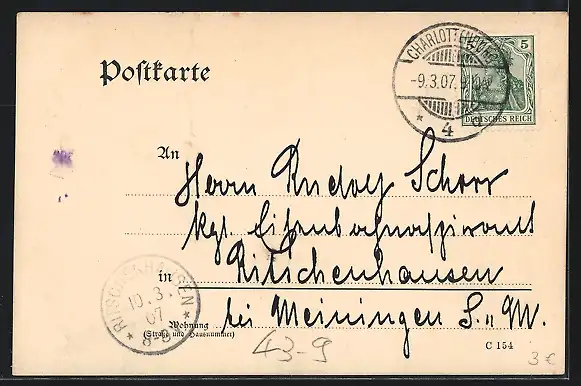 Postkarte
CHARLOTTENBURG
-9.3.07.
* 4 d
5
DEUTSCHES REICH
An
Herrn Rudolf Schorr
kgl. Eisenbahnaspirant
in Ritschenhausen
bei Meiningen S. M.
RITSCHENHAUSEN
10.3.
07
8-9
Wohnung
(Straße und Hausnummer)
43-9
C 154
3 €